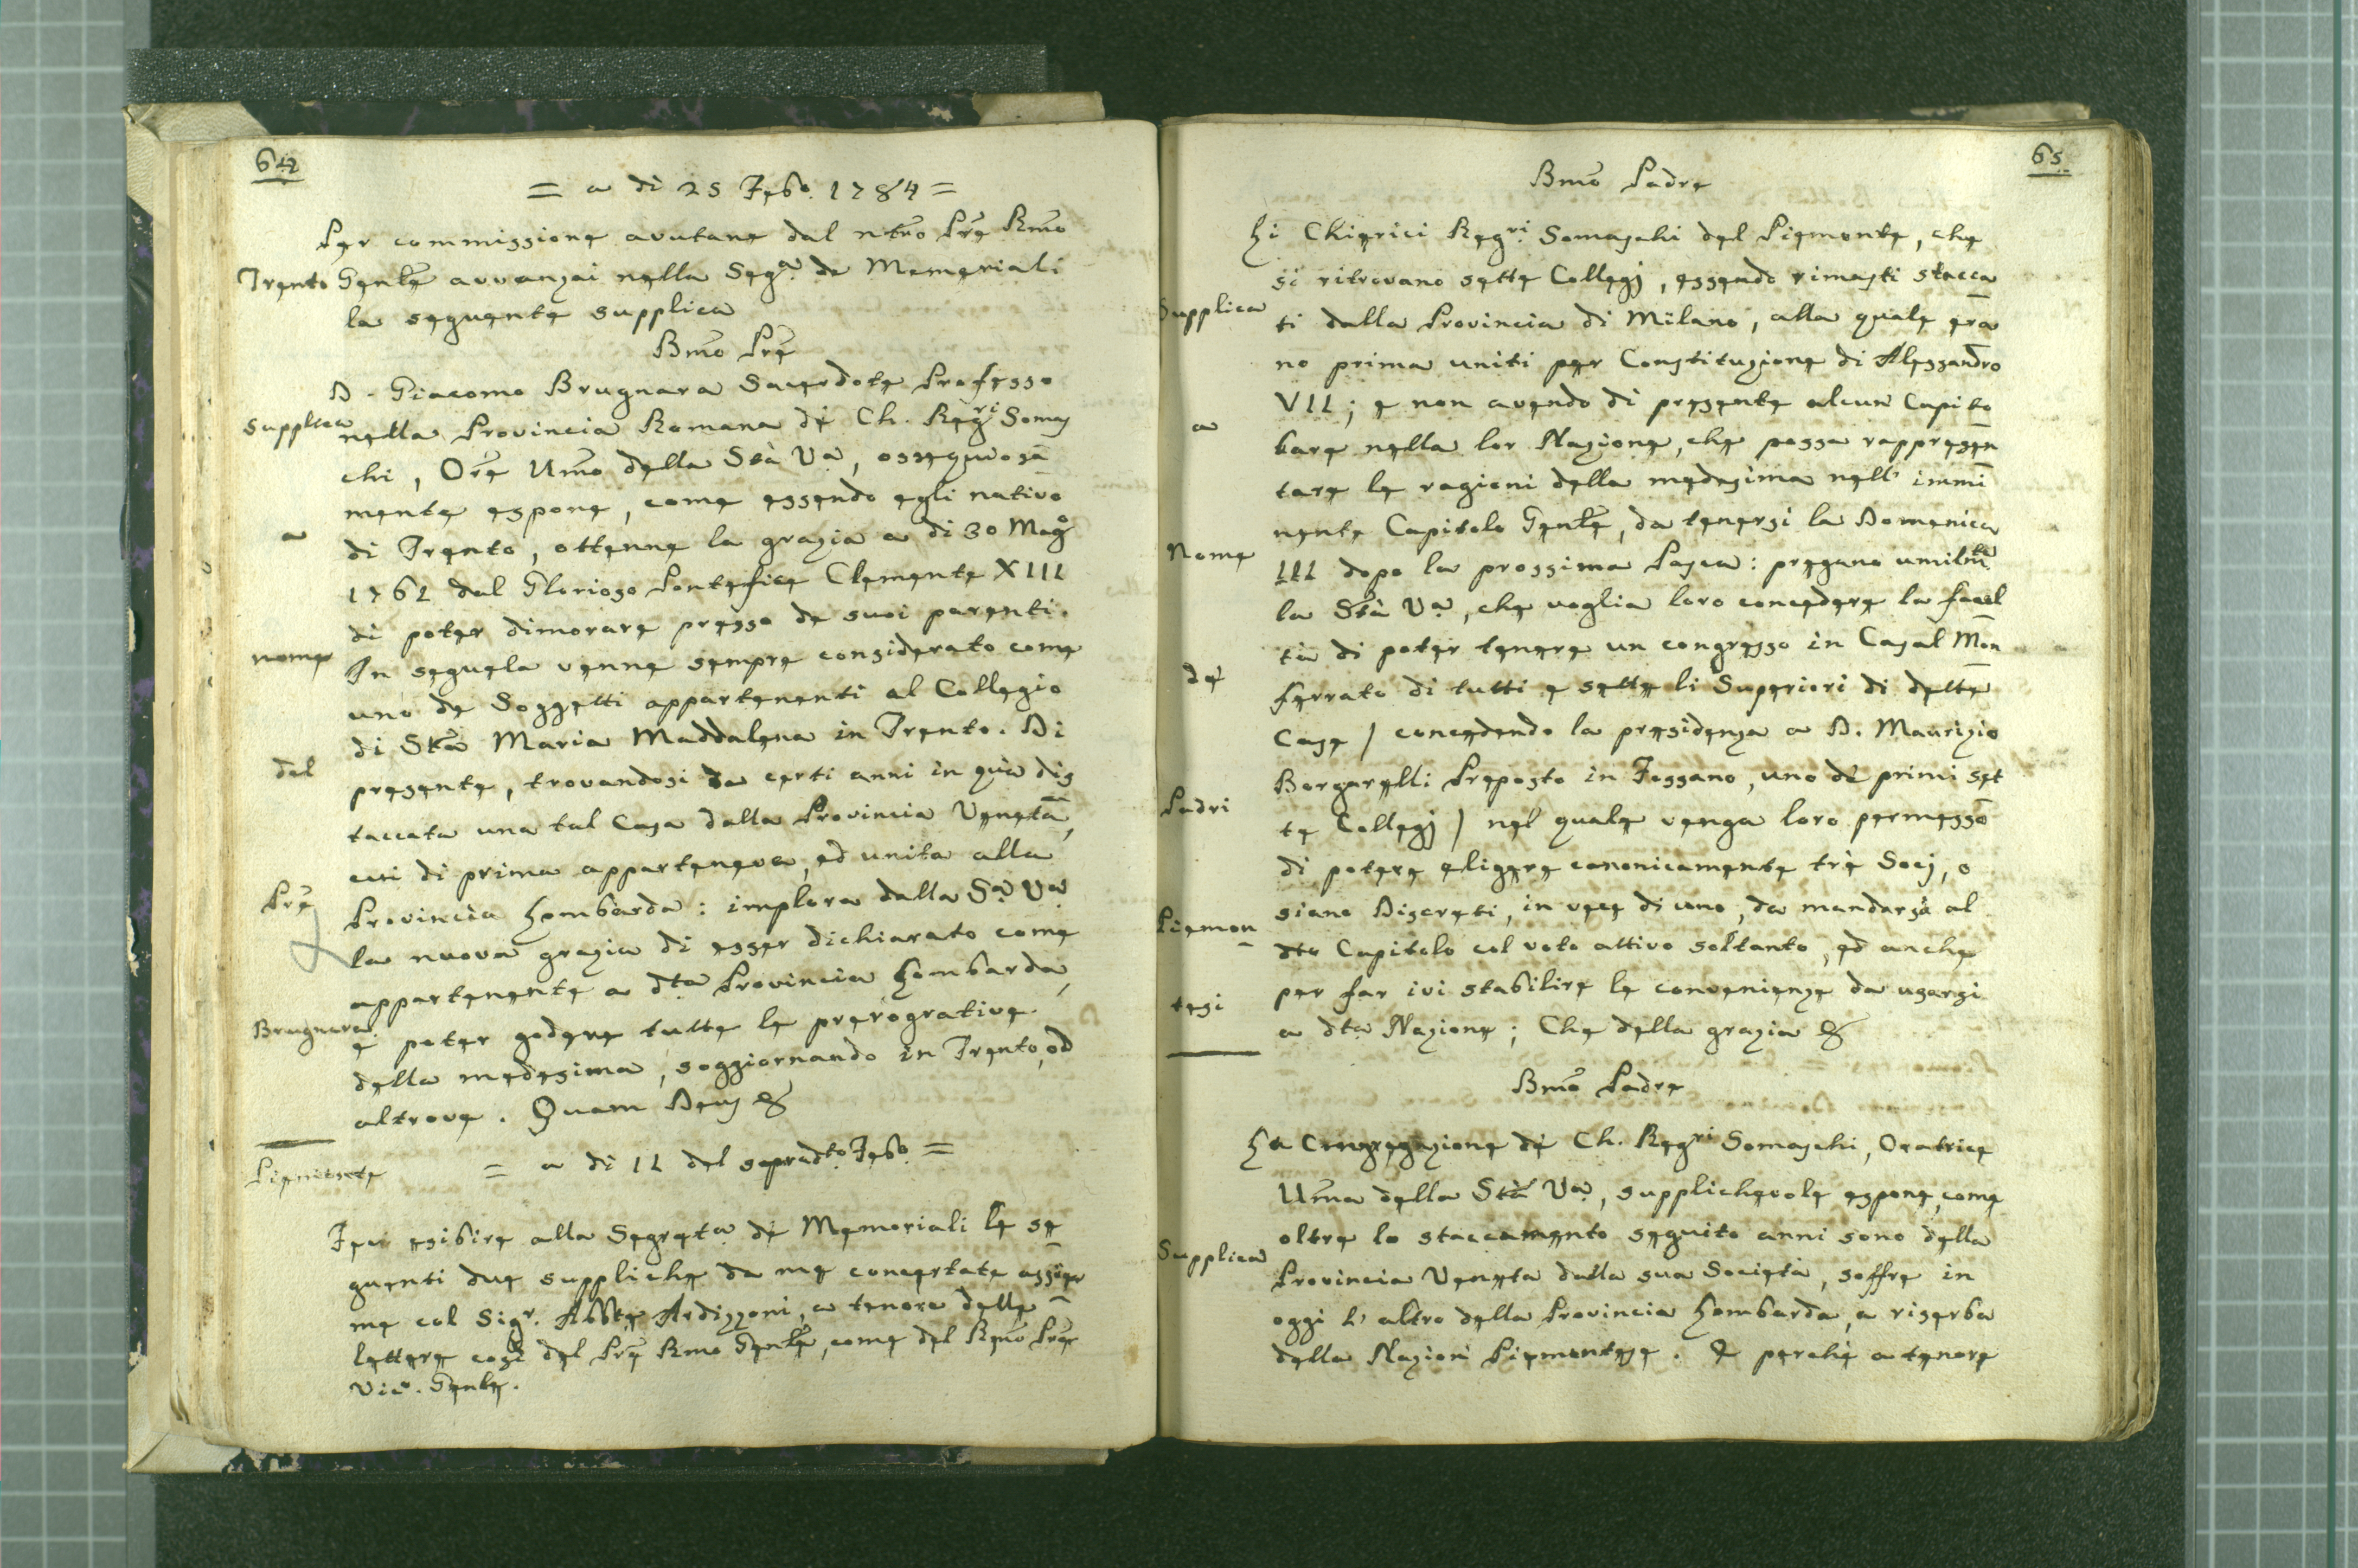 64
= a di 25 Febo. 1784 =
Per commissione avutane dal ntro Pre Rmo
Trento Genle avvanzai nella Sega. de Memoriali
la seguente supplica
Bmo Pre
D. Giacomo Brugnara Sacerdote Professo
Supplica nella Provincia Romana de Ch. Regri Somas
chi, Ore Umo della Stà Va, ossequiosa
mente espone, come essendo egli nativo
a di Trento, ottenne la grazia a di 30 Mago
1761 dal Glorioso Pontefice Clemente XIII
di poter dimorare presso de suoi parenti.
nome In seguela venne sempre considerato come
uno de Soggetti appartenenti al Collegio
di Sta Maria Maddalena in Trento. Di
del presente, trovandosi da certi anni in quà dis
taccata una tal Casa dalla Provincia Veneta,
cui di prima apparteneva, ed unita alla
Pre Provincia Lombarda: implora dalla Sa Va
la nuova grazia di esser dichiarato come
appartenente a dta Provincia Lombarda,
Brugnara e poter godere tutte le prerogrative
della medesima, soggiornando in Trento, od
altrove. Quam Deus &
Piemonte = a di 11 del sopradto. Febo. =
Feci esibire alla Segreta de Memoriali le se
guenti due suppliche da me concertate assie
me col Sigr. Abbte Ardizzoni, a tenore delle
lettere così del Pre Rmo Genle, come del Rmo Pre
Vico. Genle.
65
Bmo Padre
Li Chierici Regri. Somaschi del Piemonte, che
si ritrovano sette Collegj, essendo rimasti stacca
Supplica ti dalla Provincia di Milano, alla quale era
no prima uniti per Constituzione di Alessandro
VII; e non avendo di presente alcun Capito
a lare nella lor Nazione, che possa rappresen
tare le ragioni della medesima nell' immi
nente Capitolo Genle, da tenersi la Domenica
Nome III dopo la prossima Pasca: pregano umilmte
la Stà Va, che voglia loro concedere la facol
tà di poter tenere un congresso in Casal Mon
de' ferrato di tutti e sette li Superiori di dette
Case / concedendo la presidenza a D. Maurizio
Borgarelli Preposto in Fossano, uno de primi set
Padri te Collegj / nel quale venga loro permesso
di potere eligere canonicamente trè Socj, o
Piemon siano Discreti, in vece di uno, da mandarsi al
dto Capitolo col voto attivo soltanto, ed anche
tesi per far ivi stabilire le convenienze da usarsi
a dta Nazione; Che della grazia &
Bmo Padre
La Congregazione de Ch. Regri Somaschi, Oratrice
Uma della Stà Va, supplichevole espone, come
oltre lo staccamento seguito anni sono della
Supplica Provincia Veneta dalla sua Società, soffre in
oggi l' altro della Provincia Lombarda, a riserba
della Nazion Piemontese. E perchè a tenore